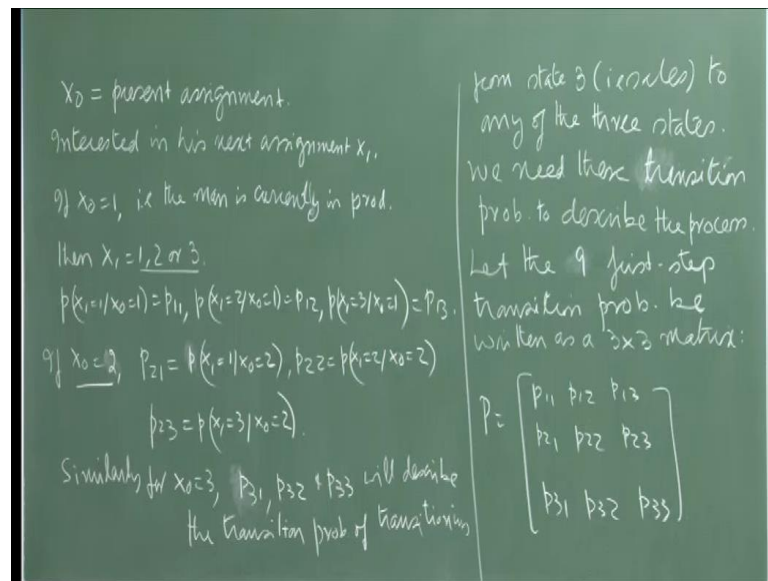 X0 = present assignment.
Interested in his next assignment X1.
If X0=1, ie the man is currently in prod.
then X1 = 1, 2 or 3.
p(X1=1/X0=1)=P11, p(X1=2/X0=1)=P12, p(X1=3/X0=1)=P13.
If X0=2, P21 = p(X1=1/X0=2), P22=p(X1=2/X0=2)
p23=p(X1=3/X0=2).
Similarly for X0=3, P31, P32 & P33 will describe
the transition prob of transitioning
from state 3 (ie sales) to
any of the three states.
We need these transition
prob. to describe the process.
Let the 9 first-step
transition prob. be
written as a 3x3 matrix:
P= [ p11 p12 p13
p21 p22 p23
p31 p32 p33 ]